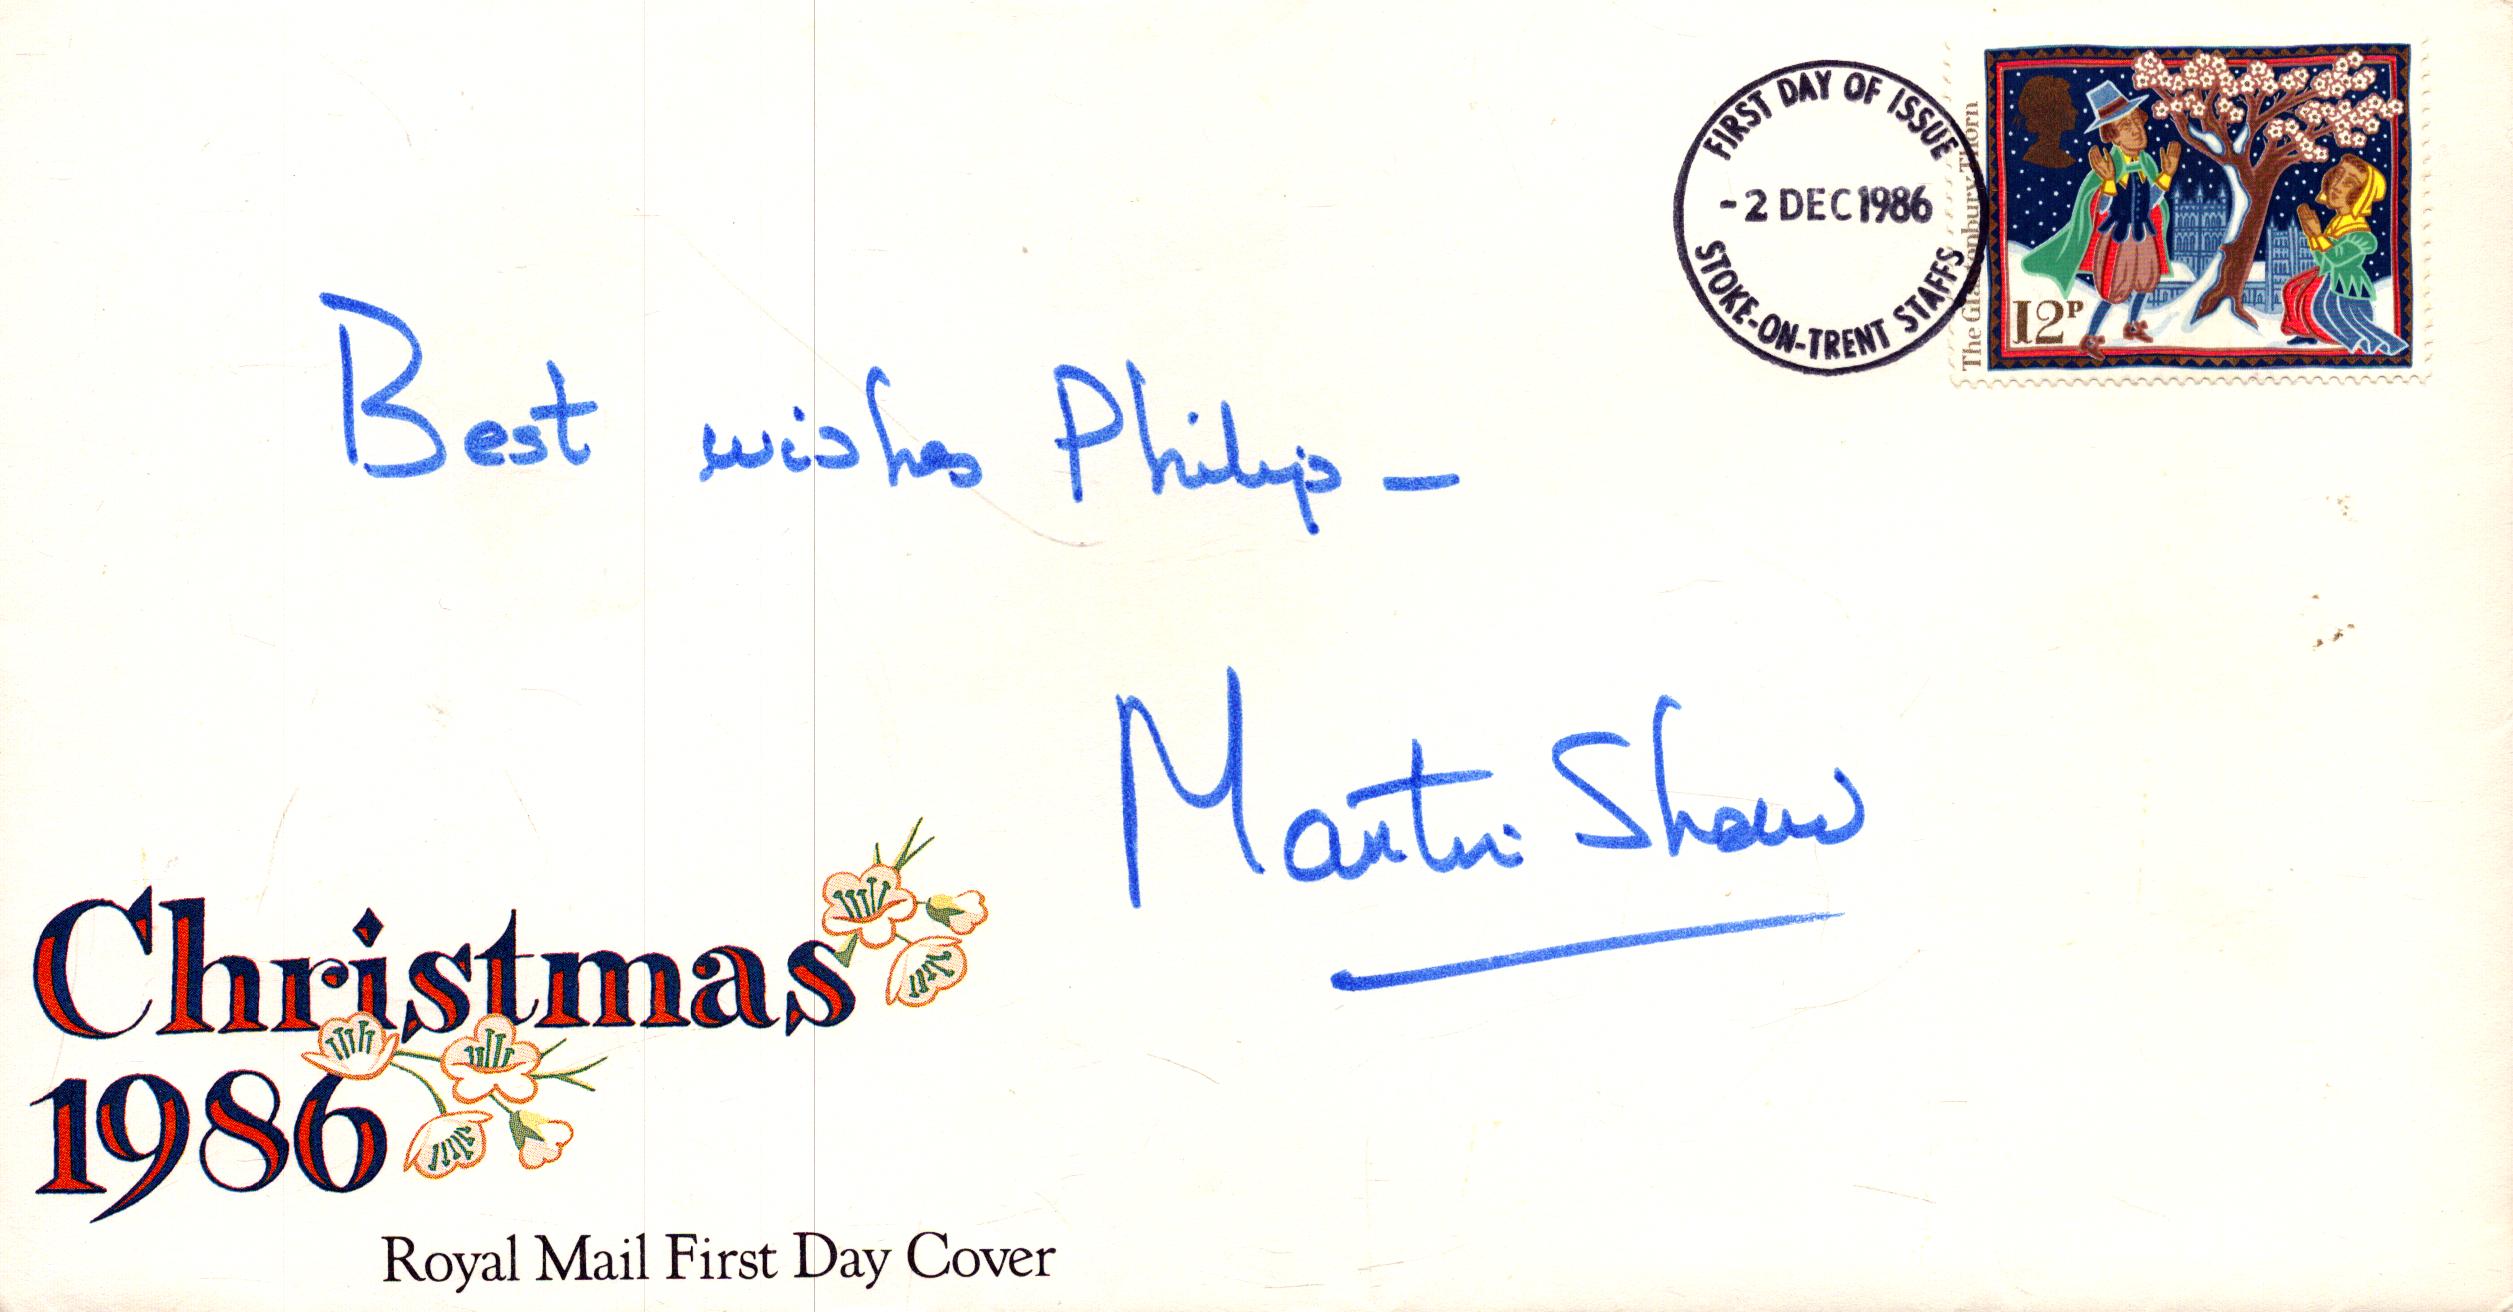 FIRST DAY OF ISSUE
-2 DEC 1986
STOKE-ON-TRENT STAFFS
The Glastonbury Thorn
12P
Best wishes Philip –
Martin Shaw
Christmas
1986
Royal Mail First Day Cover